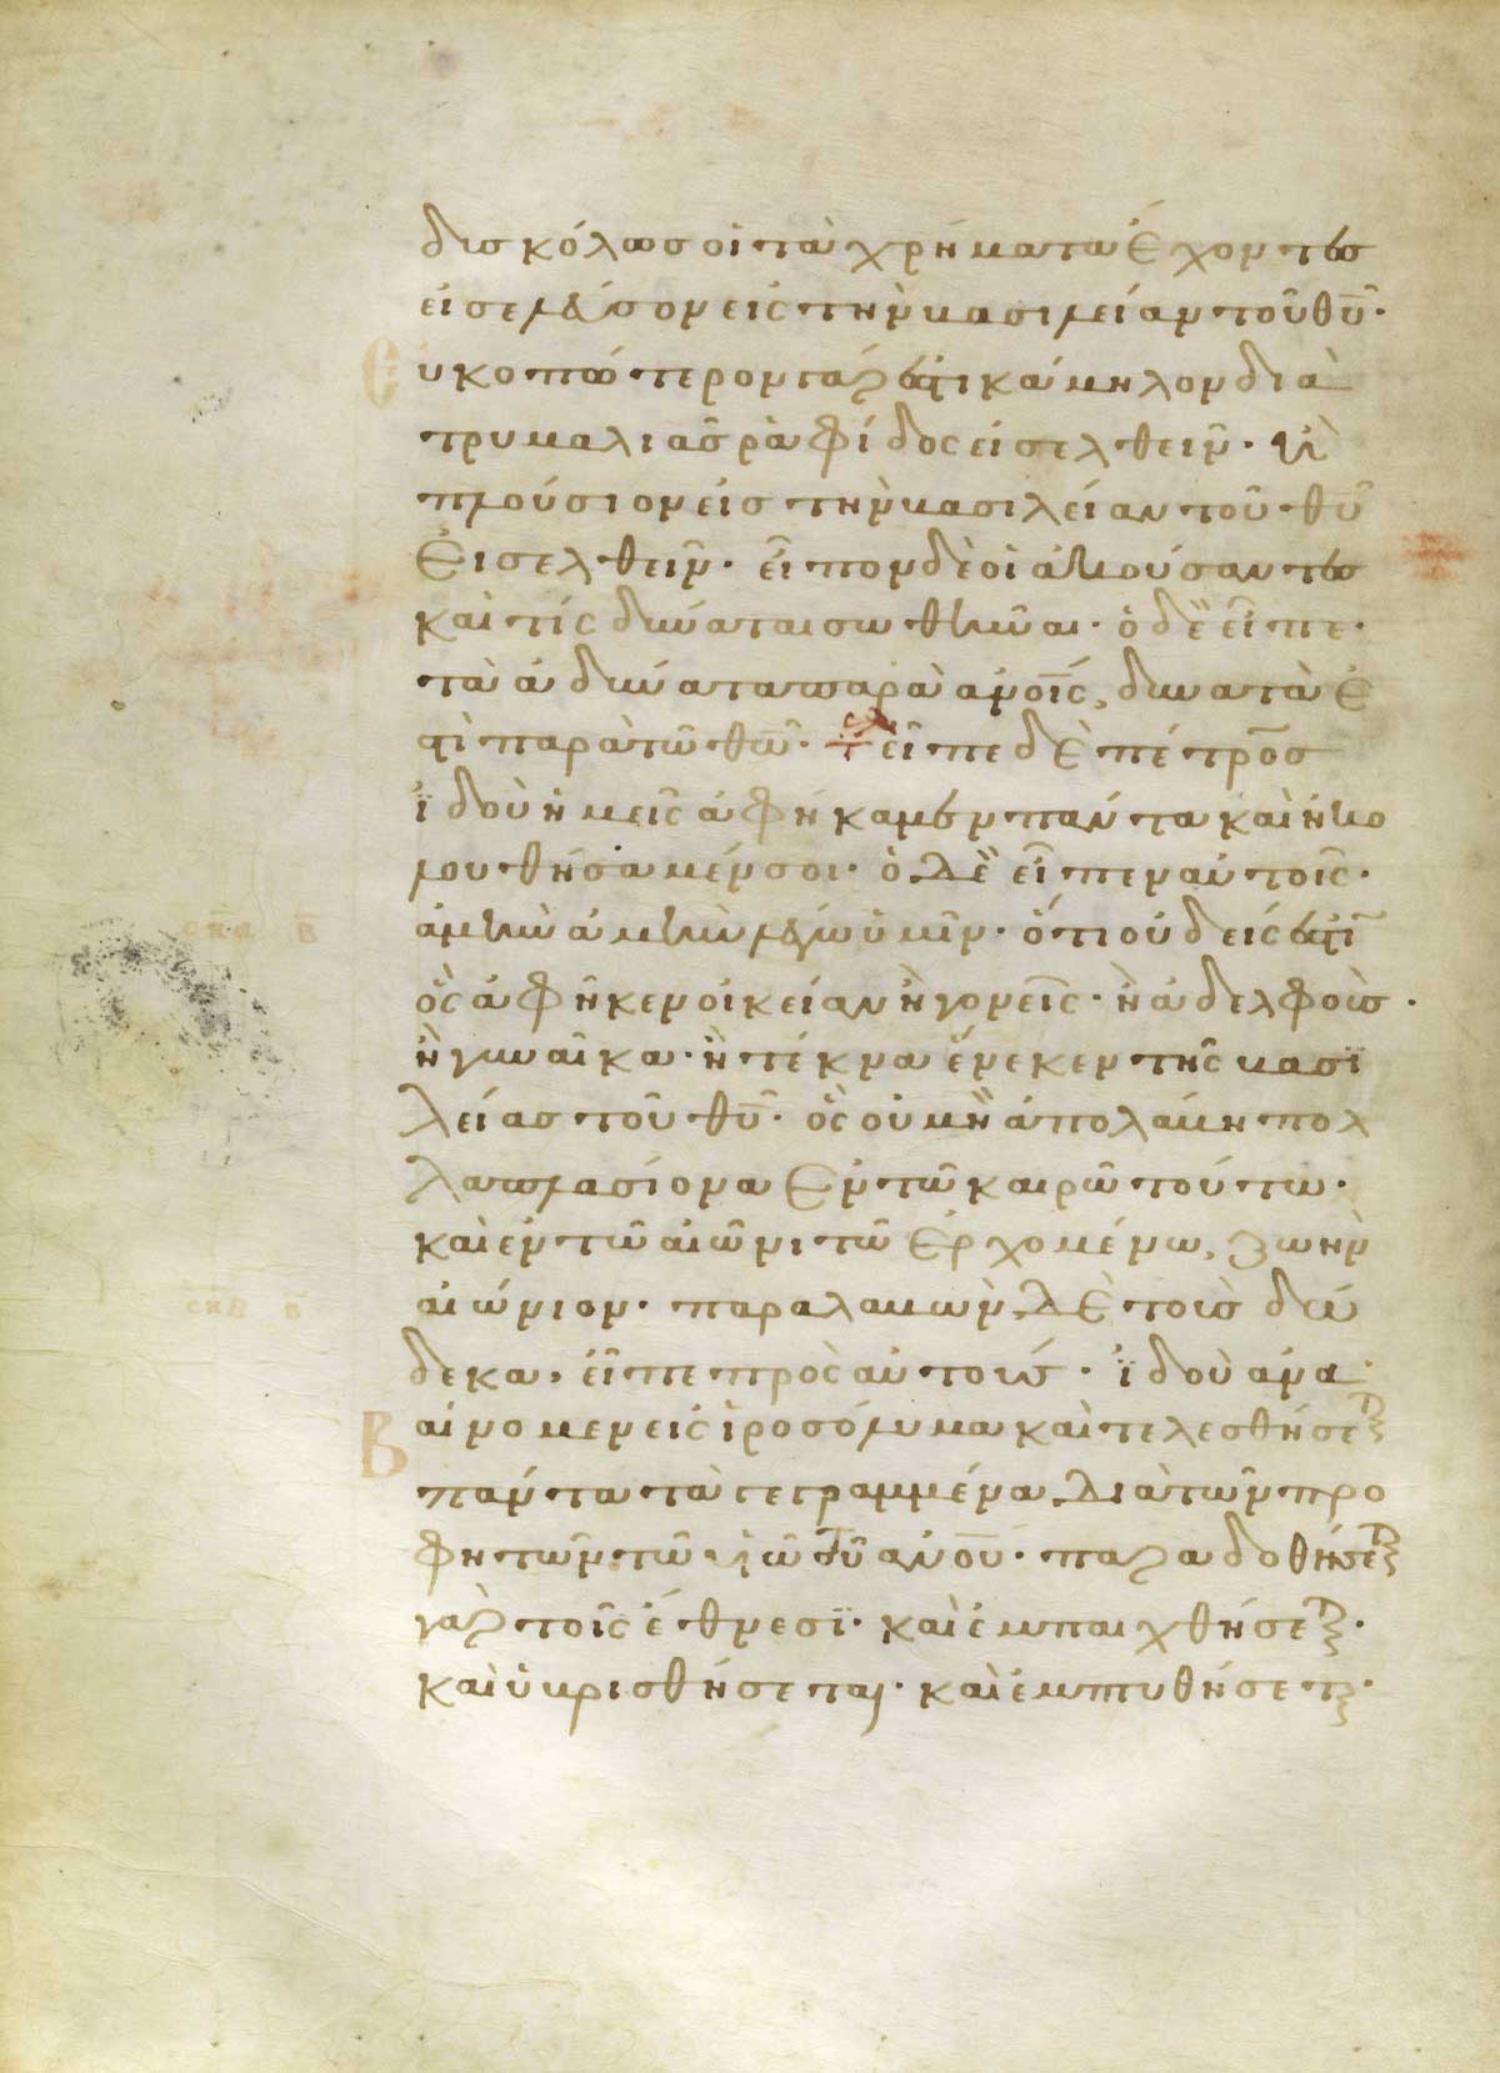 δυσκόλως οἱ τὰ χρήματα ἔχοντες
εἰσελεύσον εἰς τὴν βασιλείαν τοῦ θῦ·
Ευκοπώτερον γάρ ἐστι κάμηλον διὰ
τρυμαλιᾶς ῥαφίδος εἰσελθεῖν· ἢ
πλούσιον εἰς τὴν βασιλείαν τοῦ θῦ
εἰσελθεῖν· εἶπον δὲ οἱ ἀκούσαντες
καὶ τίς δύναται σωθῆναι· ὁ δὲ εἶπε·
τὰ ἀδύνατα παρὰ ἀνοῖς, δυνατὰ ἐ
στὶ παρὰ τῶ θῶ· εἶπε δὲ πέτρος
ἰδοὺ ἡμεῖς ἀφήκαμεν πάντα καὶ ἠκο
λουθήσαμέν σοι· ὁ δὲ εἶπεν αὐτοῖς·
ἀμὴν ἀμὴν λέγω ὑμῖν· ὅτι οὐδείς ἐστῒ
ὃς ἀφῆκεν οἰκείαν ἢ γονεῖς· ἢ ἀδελφοὺς·
ἢ γυναῖκα· ἢ τέκνα ἕνεκεν τῆς βασϊ
λείας τοῦ θῦ· ὃς οὐ μὴ ἀπολάβη πολ
λαπλασίονα ἐν τῶ καιρῶ τούτω·
καὶ ἐν τῶ αἰῶνι τῶ ἐρχομένω, ζωὴν
αἰώνιον· παραλαβὼν δὲ τοὺς δώ
δεκα, εἶπε πρὸς αὐτούς· ἰδοὺ ανα
Βαίνομεν εἰς ἱροσόλυμα καὶ τελεσθήσεται
πάντα τὰ γεγραμμένα διὰ τῶν προ
φητῶν τῶ υἱῶ τοῦ ἀνοῦ· παραδοθήσεται
γὰρ τοῖς ἔθνεσϊ· καὶ ἐμπαιχθήσεται·
καὶ ὑβρισθήσεται· καὶ ἐμπτυθήσεται·